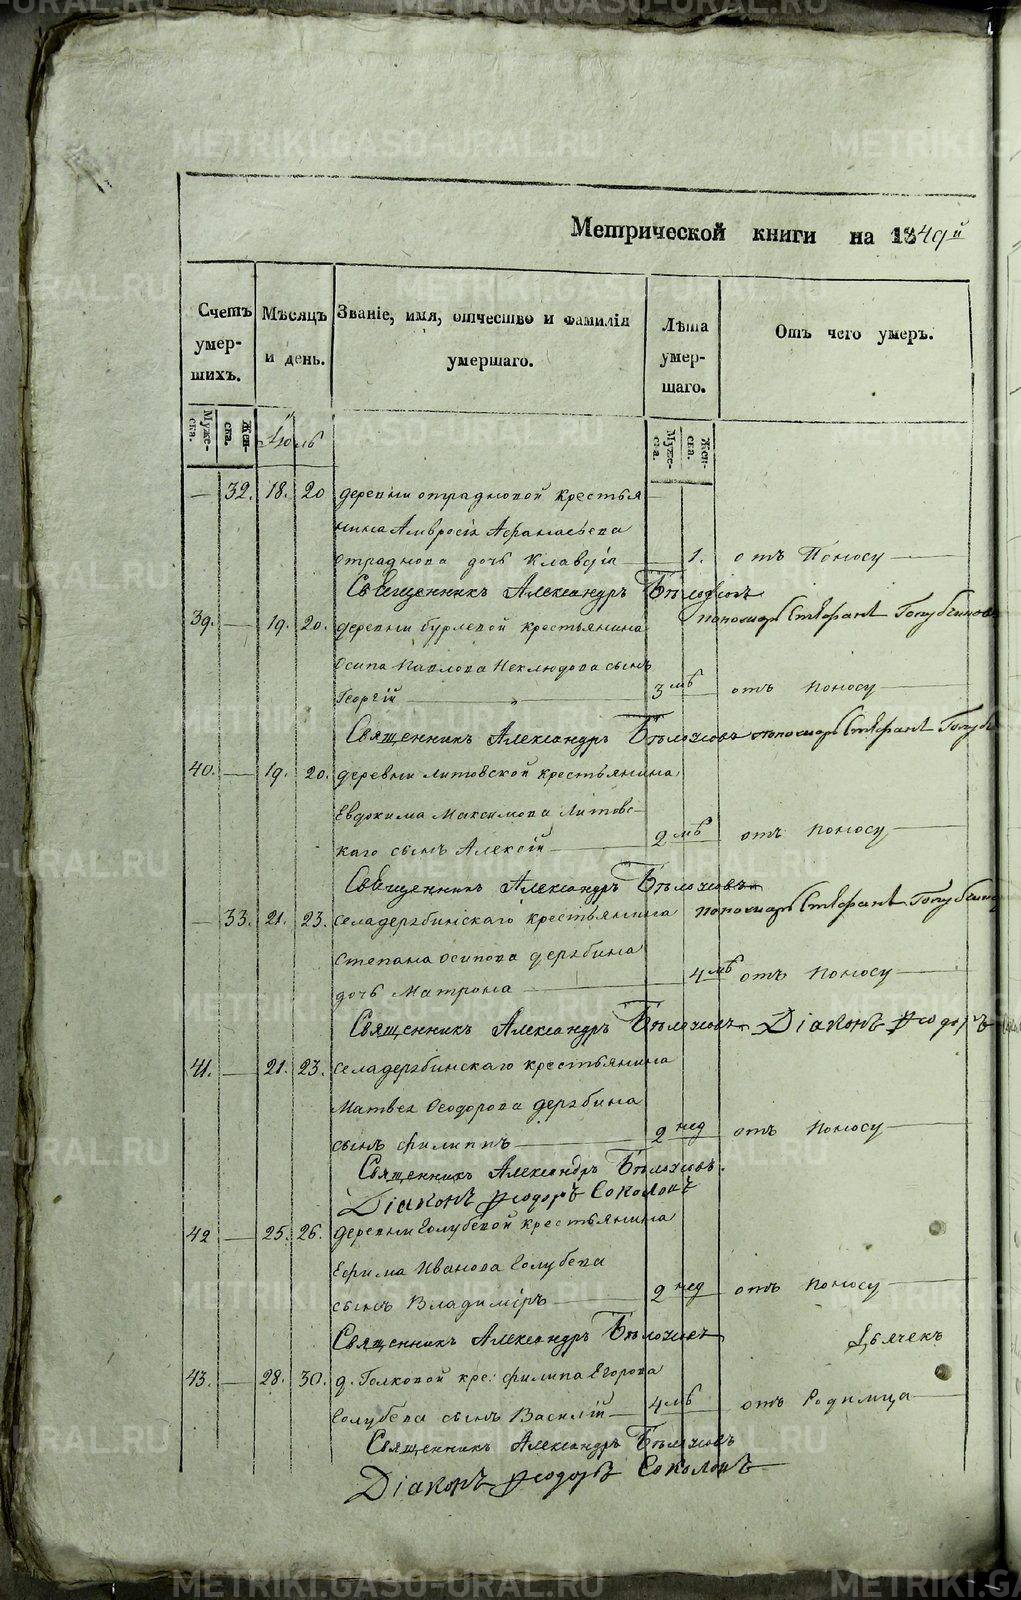 METRIKI.GASO-URAL.RU
Метрической книги на 1849й
Счетъ умер- шихъ.
Мѣсяцъ и день.
Званіе, имя, отчество и фамилія умершаго.
Лѣта умер- шаго.
Отъ чего умеръ.
Муже- ска.
Жен- ска.
Іюль
Муже- ска.
Жен- ска.
— 32. 18. 20 деревни отрадновой крестья
нина Амвросія Афанасьева
отраднова дочь Клавдіа — 1. отъ Поносу
Священникъ Александръ
39. — 19. 20. деревни бурлевой крестьянина
пономарь Стефанъ
Осипа Павлова Неклюдова сынъ
Георгій — 3 мѣ отъ поносу
Священникъ Александръ пономарь Стефанъ
40. — 19. 20. деревни литовской крестьянина
Евдокима Максимова Литовс-
каго сынъ Алексѣй — 2 мѣ отъ поносу
Священникъ Александръ
— 33. 21. 23. села дерябинскаго крестьянина
пономарь Стефанъ
Степана Осипова дерябина
дочь Матрона — 4 мѣ отъ поносу
Священникъ Александръ Діаконъ Ѳеодоръ
41. — 21. 23. села дерябинскаго крестьянина
Матвея Ѳеодорова дерябина
сынъ филиппъ — 2 нед отъ поносу
Священникъ Александръ
Діаконъ Ѳеодоръ Соколовъ
42 — 25. 26. деревни Голубевой крестьянина
Ефима Иванова Голубева
сынъ Владимиръ — 2 нед отъ поносу
Священникъ Александръ Дьячекъ
43. — 28. 30. д. Голковой кре: филипа Егорова
Голубева сынъ Василій — 4 мѣ отъ Родимца
Священникъ Александръ
Діаконъ Ѳеодоръ Соколовъ